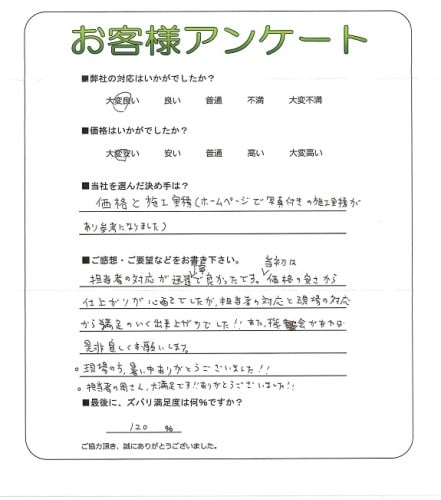 お客様アンケート
■弊社の対応はいかがでしたか?
大変良い 良い 普通 不満 大変不満
■価格はいかがでしたか?
大変安い 安い 普通 高い 大変高い
■当社を選んだ決め手は?
価格と施工実績(ホームページで写真付きの施工実績が
あり参考になりました)
■ご感想・ご要望などをお書き下さい。
担当者の対応が迅速で良かったです。当初は価格の安さから
仕上がりが心配でしたが、担当者の対応と現場の対応
から満足のいく出来上がりでした!!また、機会があれば
是非宜しくお願いします。
。現場の方、暑い中ありがとうございました!!
。担当者の さん、大満足です!!ありがとうございました!!
■最後に、ズバリ満足度は何%ですか?
120 %
ご協力頂き、誠にありがとうございました。